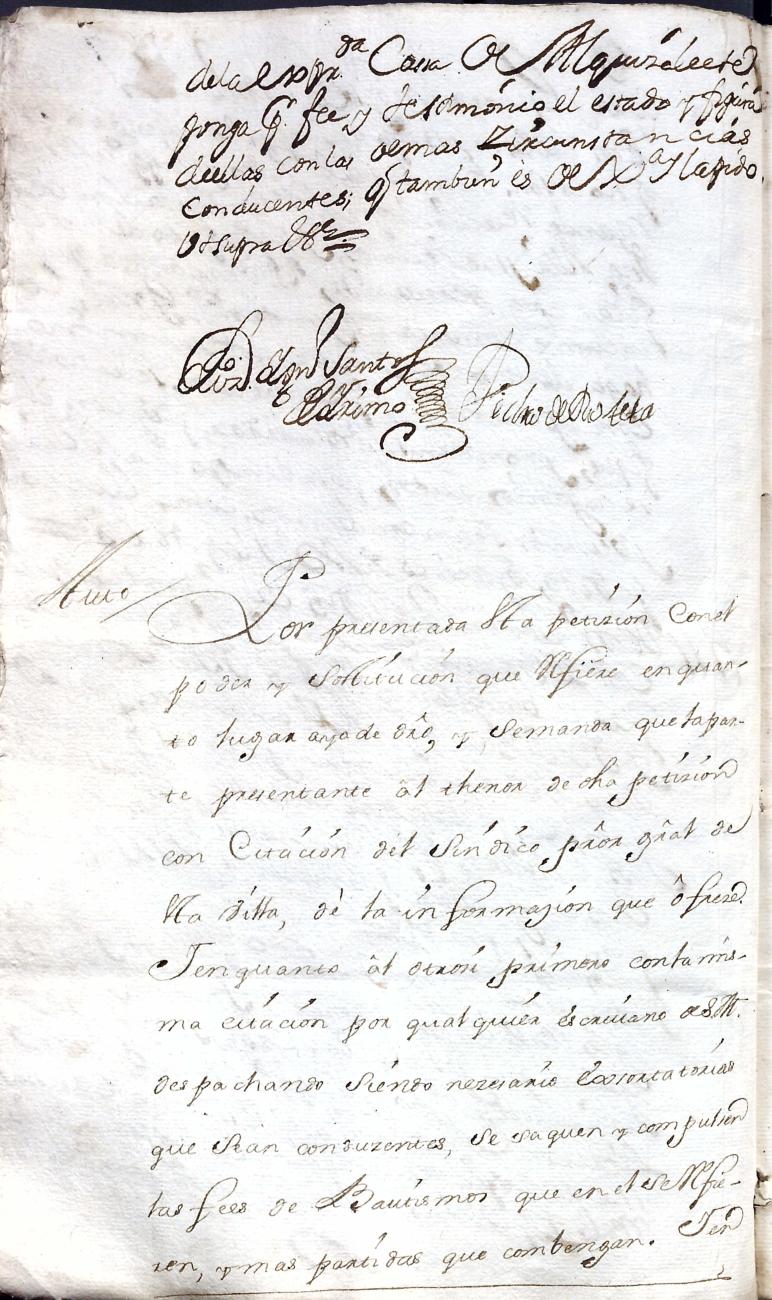 de la expr.da Cassa de Alquizaleete
ponga p.r fee y testimónio el estado y figura
de ellas con las demas Zircunstancias
Conducentes; q tambien és de Xa y la pido
Vt supra &.a
Santos
Máximo Pedro de
Auto
Por presentada esta petizión con el
poder y sobstituzión que refiere en quan-
to lugar aya de dro, y, se manda que la par-
te presentante ál thenor de dha petizión
con Citazión del Sindico prôr grâl de
esta Villa, dè la informazion que ôfreze.
Y en quanto âl otrosi primero con la mis-
ma citazión por qual quiér éscriuano de S.M.
despachando siéndo nezesario êxsortatorias
que sean conduzentes, se saquen y compulsen
las fees de Bautismos que en el se refie-
ren, y mas partidas que combengan. Y en